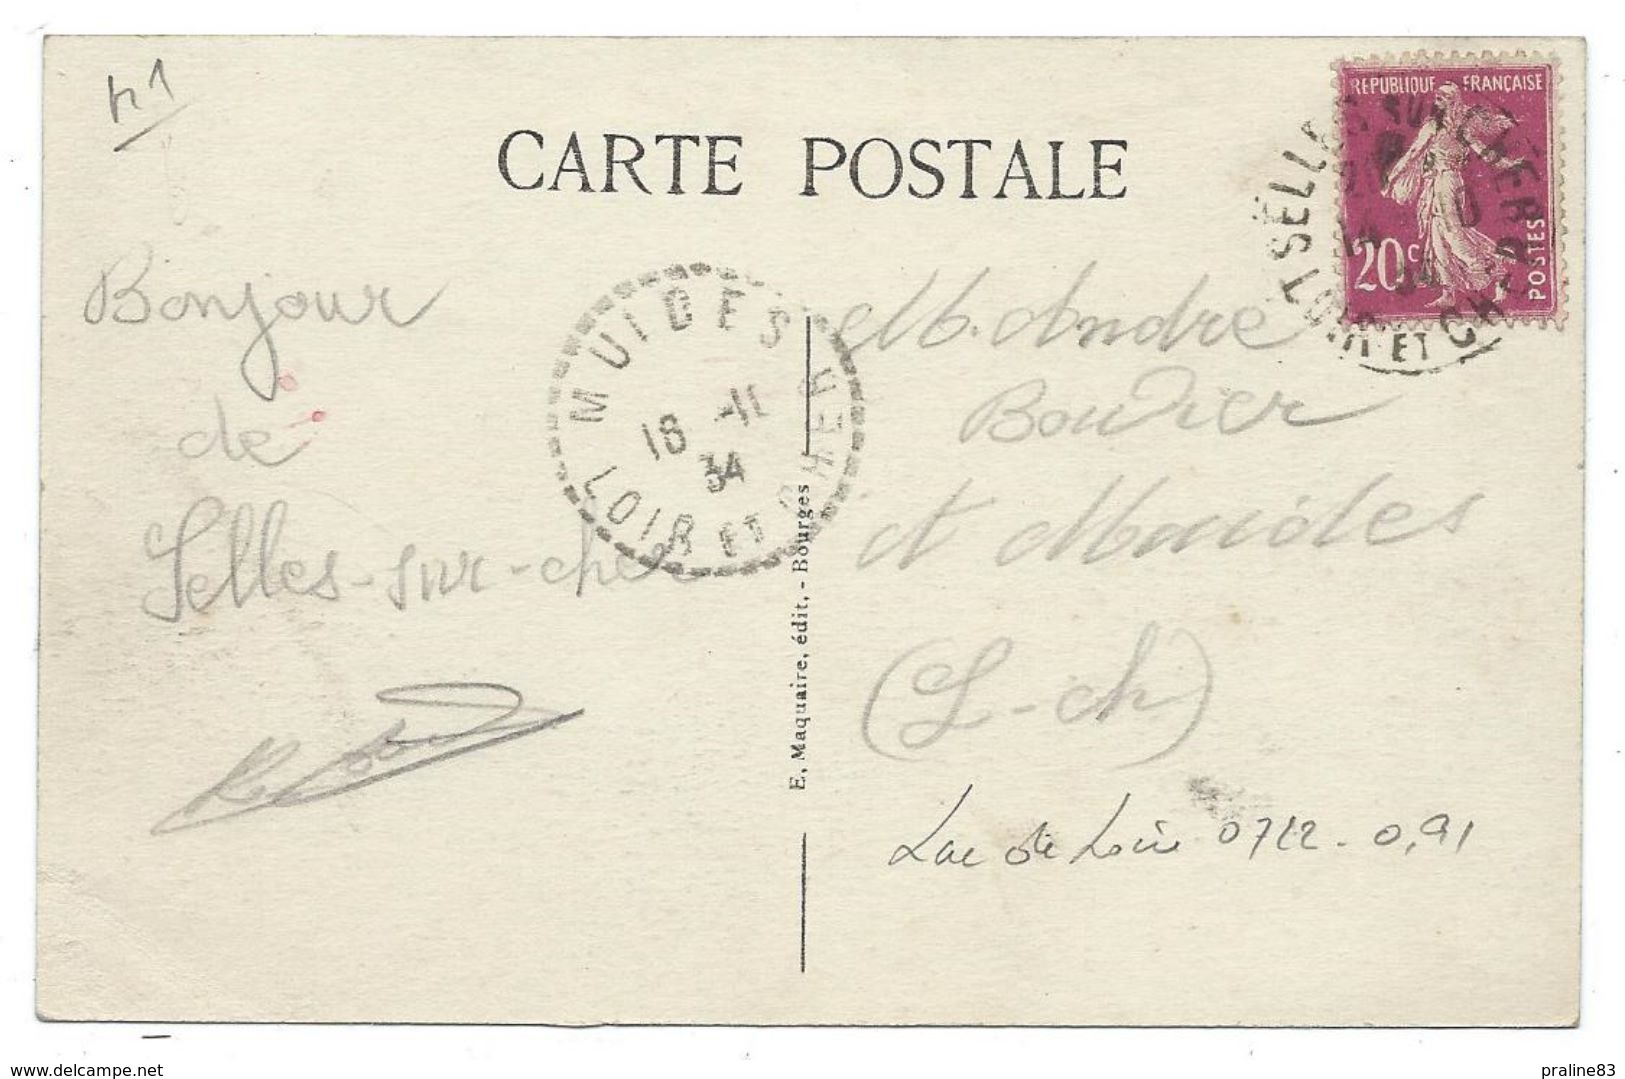 41
CARTE POSTALE
RÉPUBLIQUE FRANÇAISE
20c
POSTES
SELLES SUR CHER
LOIR ET CHER
Bonjour
de
Selles-sur-cher
MUIDES
18 -11
34
LOIR ET CHER
M. André
Bouvier
à Muides
(L-ch)
E. Maquaire, édit, - Bourges
Lac de Loire 0712 - 0,91
www.delcampe.net
praline83